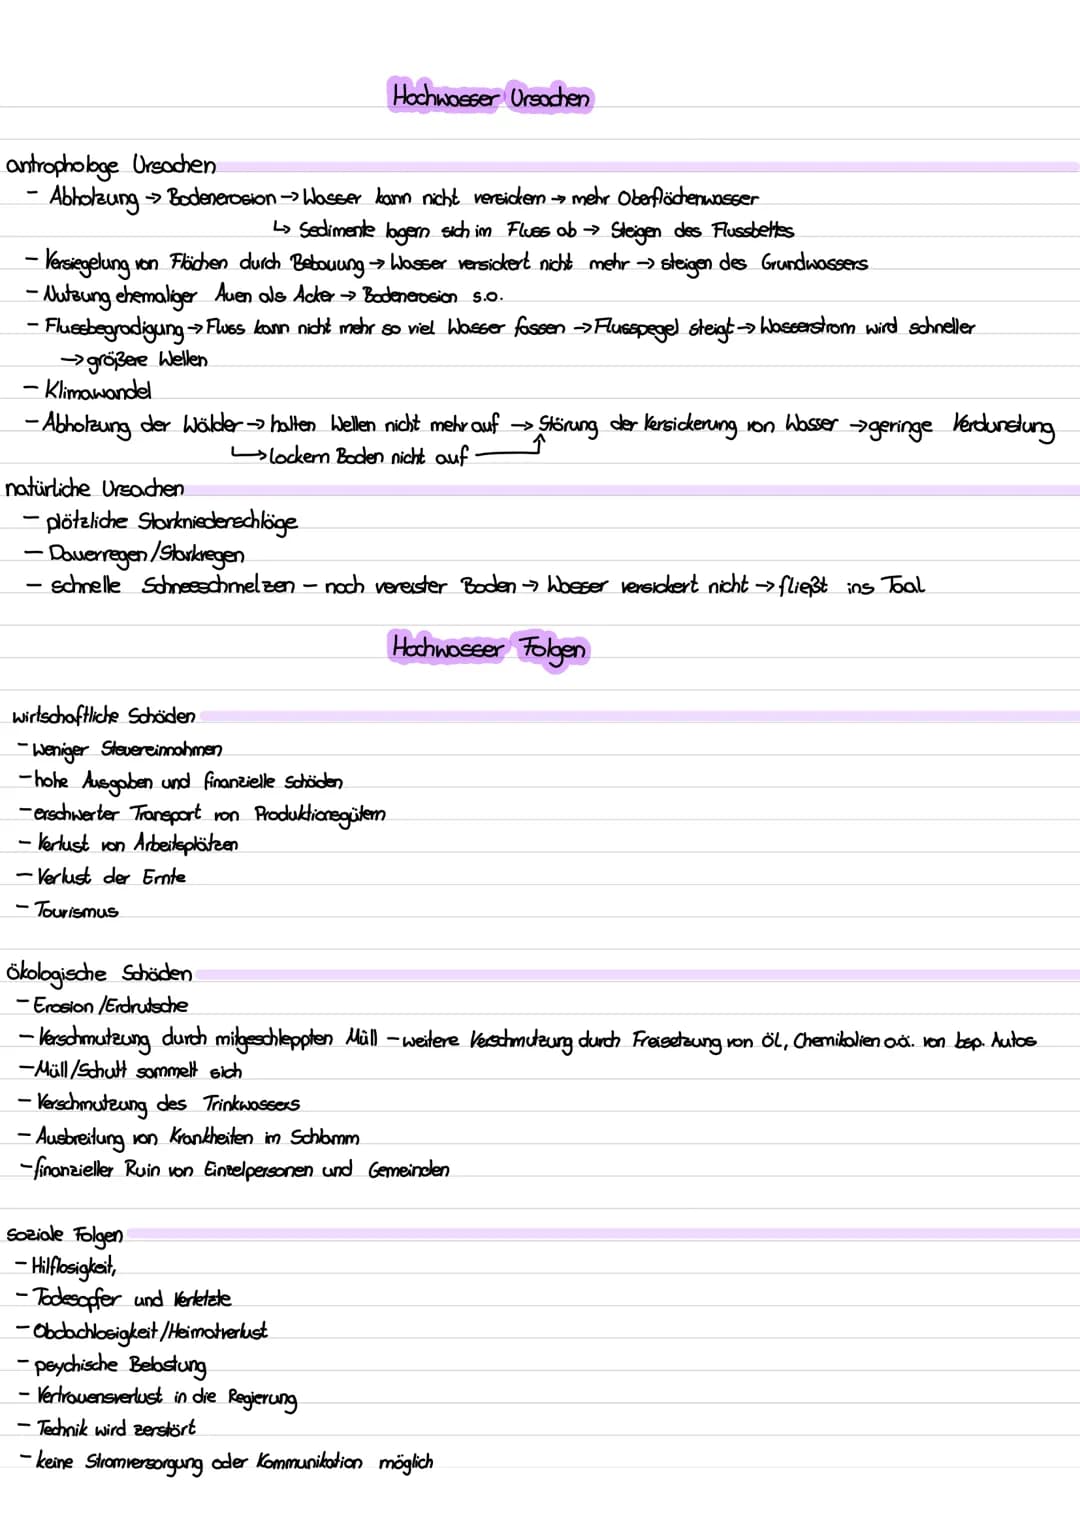 Hochwasser Ursachen
antrophologe Ursachen
- Abholzung → Bodenerosion → Wasser kann nicht versickern → mehr Oberflächenwasser
↳ Sedimente lagern sich im Fluss ab → Steigen des Flussbettes
- Versiegelung von Flächen durch Bebauung → Wasser versickert nicht mehr → steigen des Grundwassers
- Nutzung ehemaliger Auen als Acker → Bodenerosion s.o.
- Flussbegradigung → Fluss kann nicht mehr so viel Wasser fassen → Flusspegel steigt → Wasserstrom wird schneller
→ größere Wellen
- Klimawandel
- Abholzung der Wälder → halten Wellen nicht mehr auf → Störung der Versickerung von Wasser → geringe Verdunstung
↳ lockern Boden nicht auf
natürliche Ursachen
- plötzliche Starkniederschläge
- Dauerregen/Starkregen
- schnelle Schneeschmelzen - noch vereister Boden → Wasser versickert nicht → fließt ins Taal
Hochwasser Folgen
wirtschaftliche Schäden
- weniger Steuereinnahmen
- hohe Ausgaben und finanzielle Schäden
- erschwerter Transport von Produktionsgütern
- Verlust von Arbeitsplätzen
- Verlust der Ernte
- Tourismus
ökologische Schäden
- Erosion/Erdrutsche
- Verschmutzung durch mitgeschleppten Müll - weitere Verschmutzung durch Freisetzung von Öl, Chemikalien o.ä. von bsp. Autos
- Müll/Schutt sammelt sich
- Verschmutzung des Trinkwassers
- Ausbreitung von Krankheiten im Schlamm
- finanzieller Ruin von Einzelpersonen und Gemeinden
soziale Folgen
- Hilflosigkeit,
- Todesopfer und Verletzte
- Obdachlosigkeit/Heimatverlust
- psychische Belastung
- Vertrauensverlust in die Regierung
- Technik wird zerstört
- keine Stromversorgung oder Kommunikation möglich